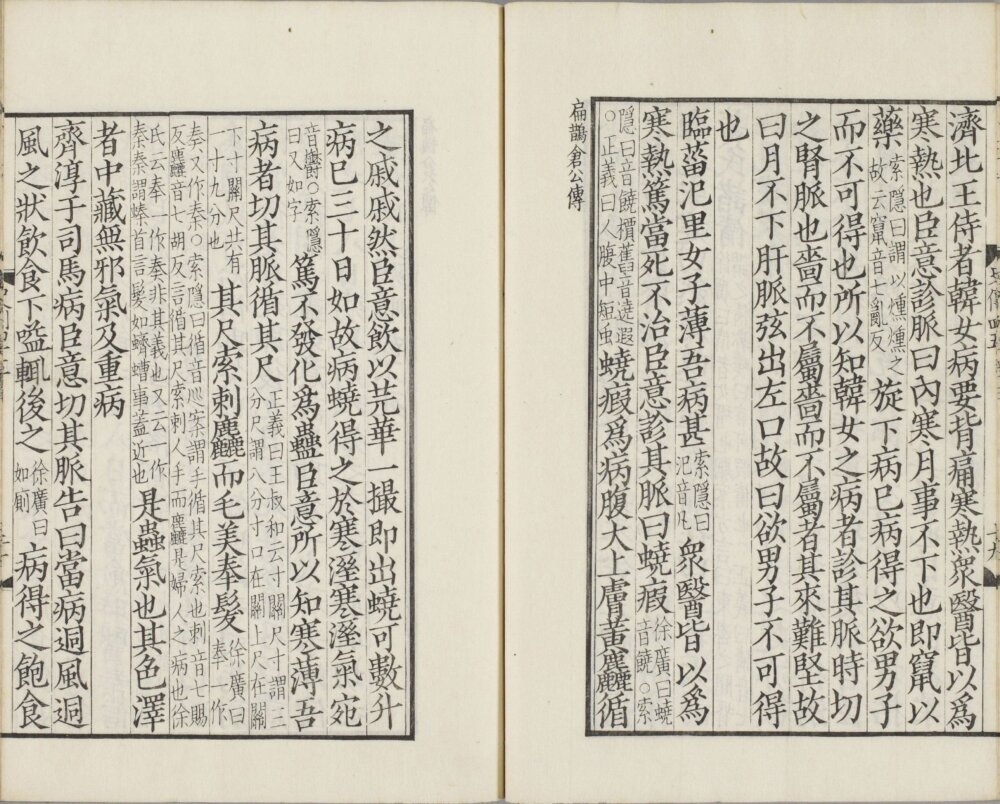 濟北王侍者韓女病要背痛寒熱衆醫皆以爲
寒熱也臣意診脈曰內寒月事不下也即竄以
藥索隱曰謂以燻燻之故云竄音七亂反旋下病已病得之欲男子
而不可得也所以知韓女之病者診其脈時切
之腎脈也嗇而不屬嗇而不屬者其來難堅故
曰月不下肝脈弦出左口故曰欲男子不可得
也
臨菑氾里女子薄吾病甚索隱曰氾音凡衆醫皆以爲
寒熱篤當死不治臣意診其脈曰蟯瘕徐廣曰蟯音饒○索
隱曰音饒檟舊音遶遐○正義曰人腹中短虫蟯瘕爲病腹大上膚黃麤循
扁鵲倉公傳
之戚戚然臣意飲以芫華一撮即出蟯可數升
病已三十日如故病蟯得之於寒溼寒溼氣宛
音鬱○索隱曰又如字篤不發化爲蟲臣意所以知寒薄吾
病者切其脈循其尺正義曰王叔和云寸關尺寸謂三分尺謂八分寸口在關上尺在關
下寸關尺共有一寸九分也其尺索刺麤而毛美奉髮徐廣曰奉一作
奏又作秦○索隱曰循音巡案謂手循其尺索也刺音七賜反麤音七胡反言循其尺索刺人手而麤是婦人之病也徐
氏云奉一作奏非其義也又云一作秦秦謂螓首言髮如蠐螬事蓋近也是蟲氣也其色澤
者中藏無邪氣及重病
齊淳于司馬病臣意切其脈告曰當病迵風迵
風之狀飲食下嗌輒後之徐廣曰如厠病得之飽食